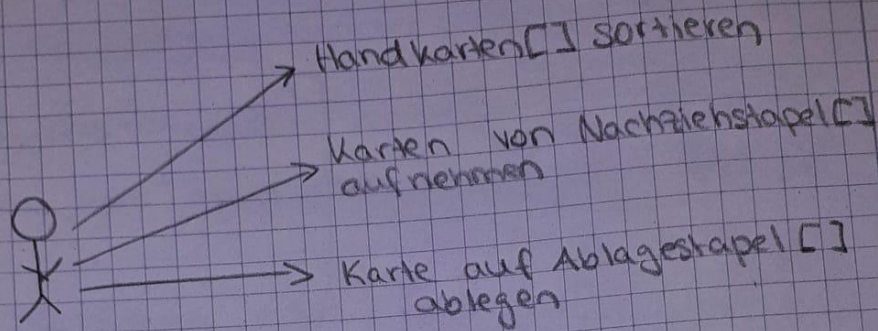 Handkarten[] sortieren
Karten von Nachziehstapel[]
aufnehmen
Karte auf Ablagestapel []
ablegen